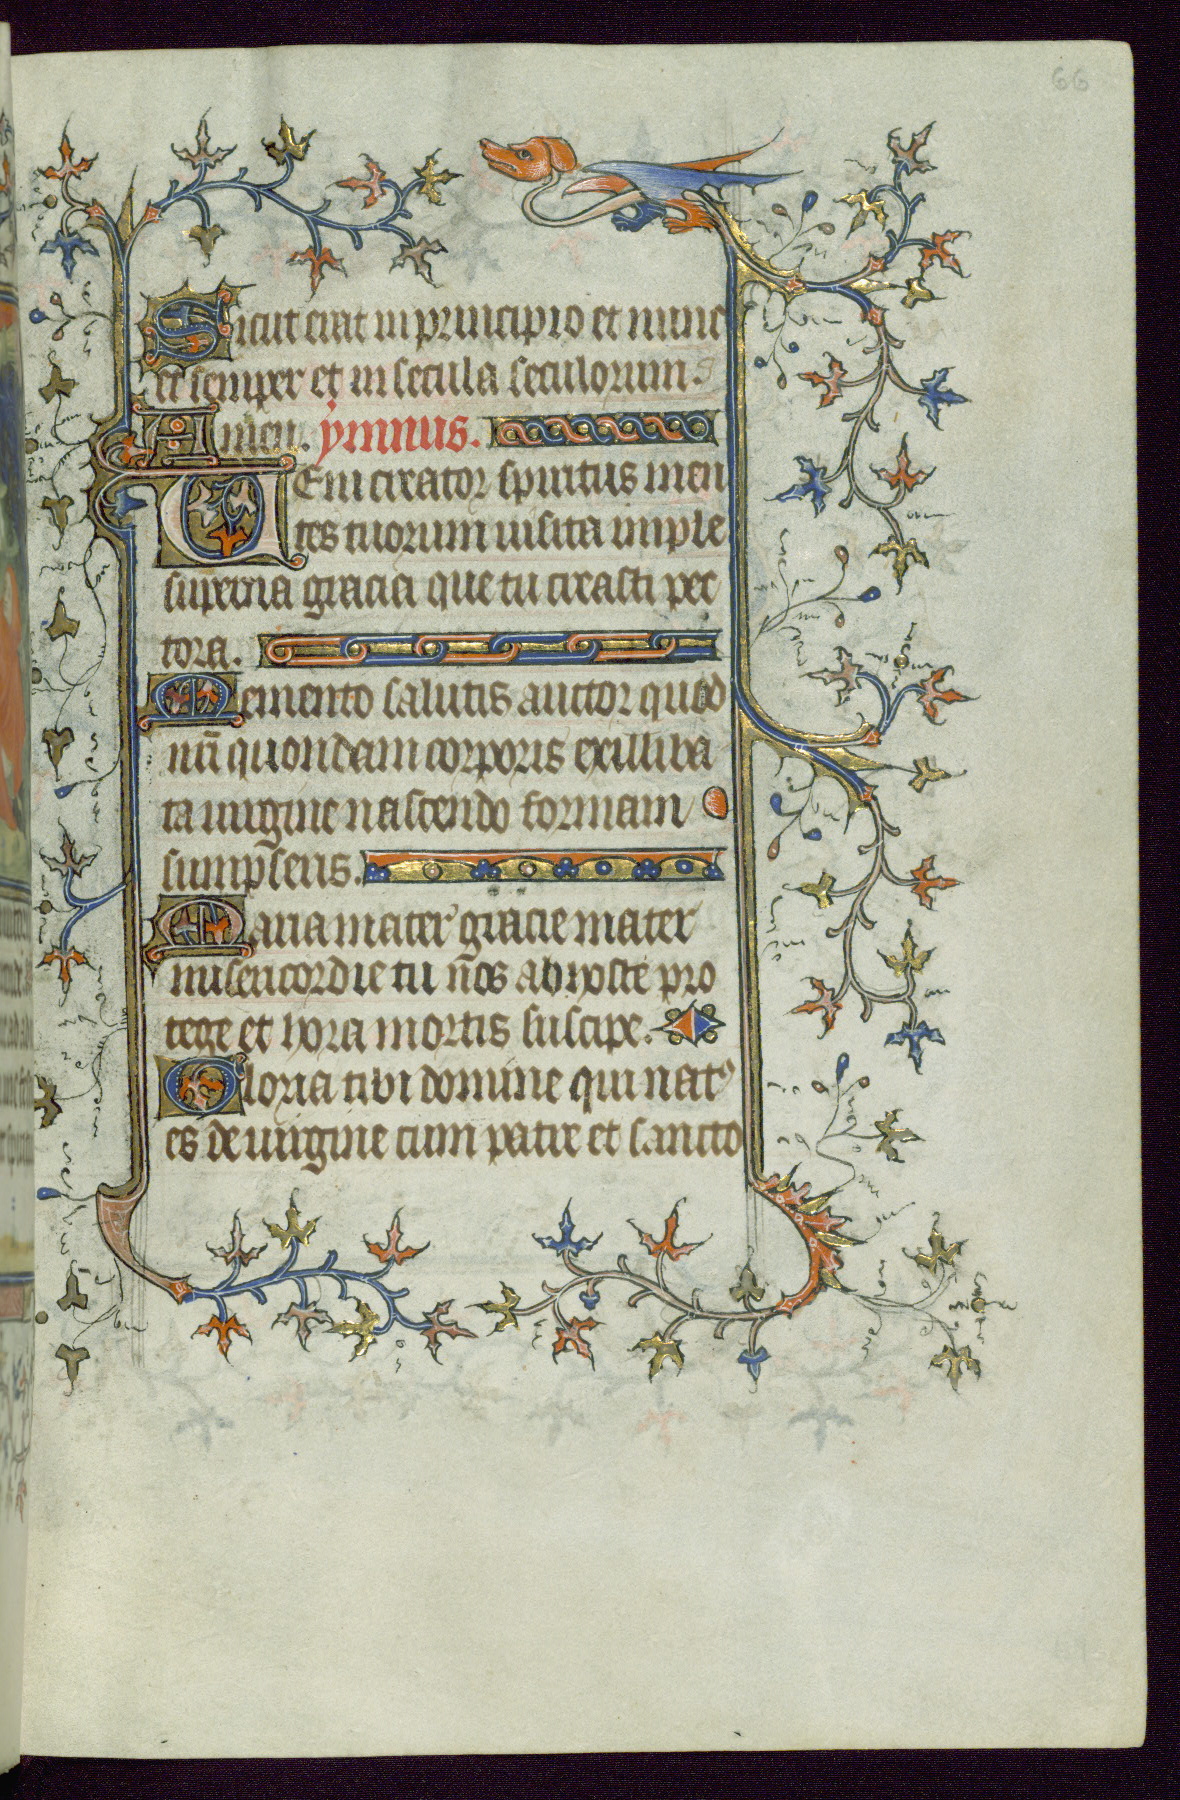 66
Sicut erat in principio et nunc
et semper et in secula seculorum.
Amen. ymnus.
Ueni creator spiritus men
tes tuorum uisita imple
superna gracia que tu creasti pec
tora.
Memento salutis auctor quod
nr̄i quondam corporis ex illiba
ta uirgine nascendo formam
sumpseris.
Maria mater gracie mater
misericordie tu nos ab hoste pro
tege et hora mortis suscipe.
Gloria tibi domine qui natꝰ
es de uirgine cum patre et sancto